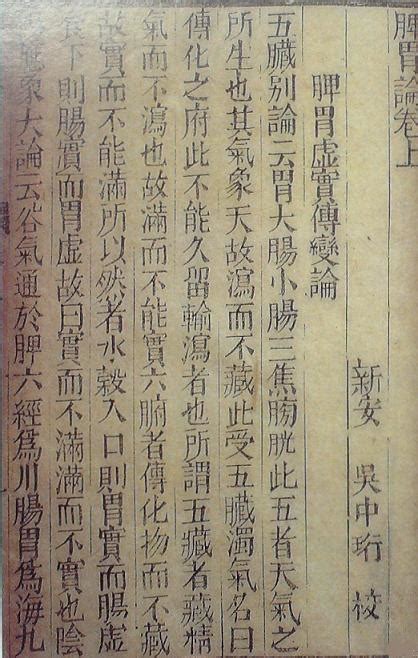 脾胃論卷上
新安 吳中珩 校
脾胃虛實傳變論
五臟別論云胃大腸小腸三焦膀胱此五者天氣之
所生也其氣象天故瀉而不藏此受五臟濁氣名曰
傳化之府此不能久留輸瀉者也所謂五藏者藏精
氣而不瀉也故滿而不能實六腑者傳化物而不藏
故實而不能滿所以然者水穀入口則胃實而腸虛
食下則腸實而胃虛故曰實而不滿滿而不實也陰
應象大論云谷氣通於脾六經爲川腸胃爲海九